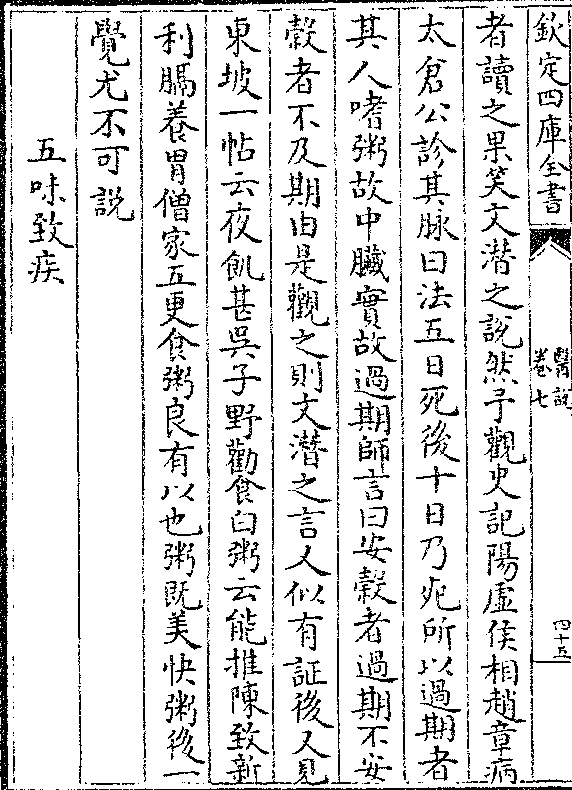 欽定四庫全書
醫說
卷七
四十五
者讀之果笑文潛之說然予觀史記陽虛侯相趙章病
太倉公診其脉曰法五日死後十日乃死所以過期者
其人嗜粥故中臟實故過期師言曰安穀者過期不安
穀者不及期由是觀之則文潛之言又似有証後又見
東坡一帖云夜飢甚吳子野勸食白粥云能推陳致新
利膈養胃僧家五更食粥良有以也粥既美快粥後一
覺尤不可說
五味致疾